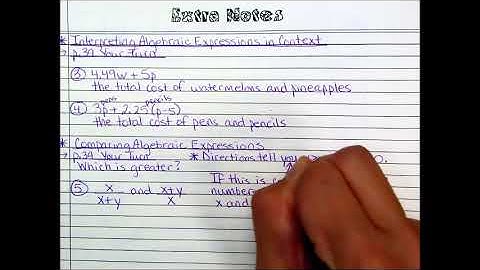 Extra Notes
* Interpreting Algebraic Expressions in Context
→ p.34 Your Turn
③ 4.49w + 5p
the total cost of watermelons and pineapples
pens pencils
④ 3p + 2.25(p-5)
the total cost of pens and pencils
* Comparing Algebraic Expressions
→ p.34 Your Turn * Directions tell you
Which is greater?
⑤ x/x+y and x+y/x If this is
number
x and